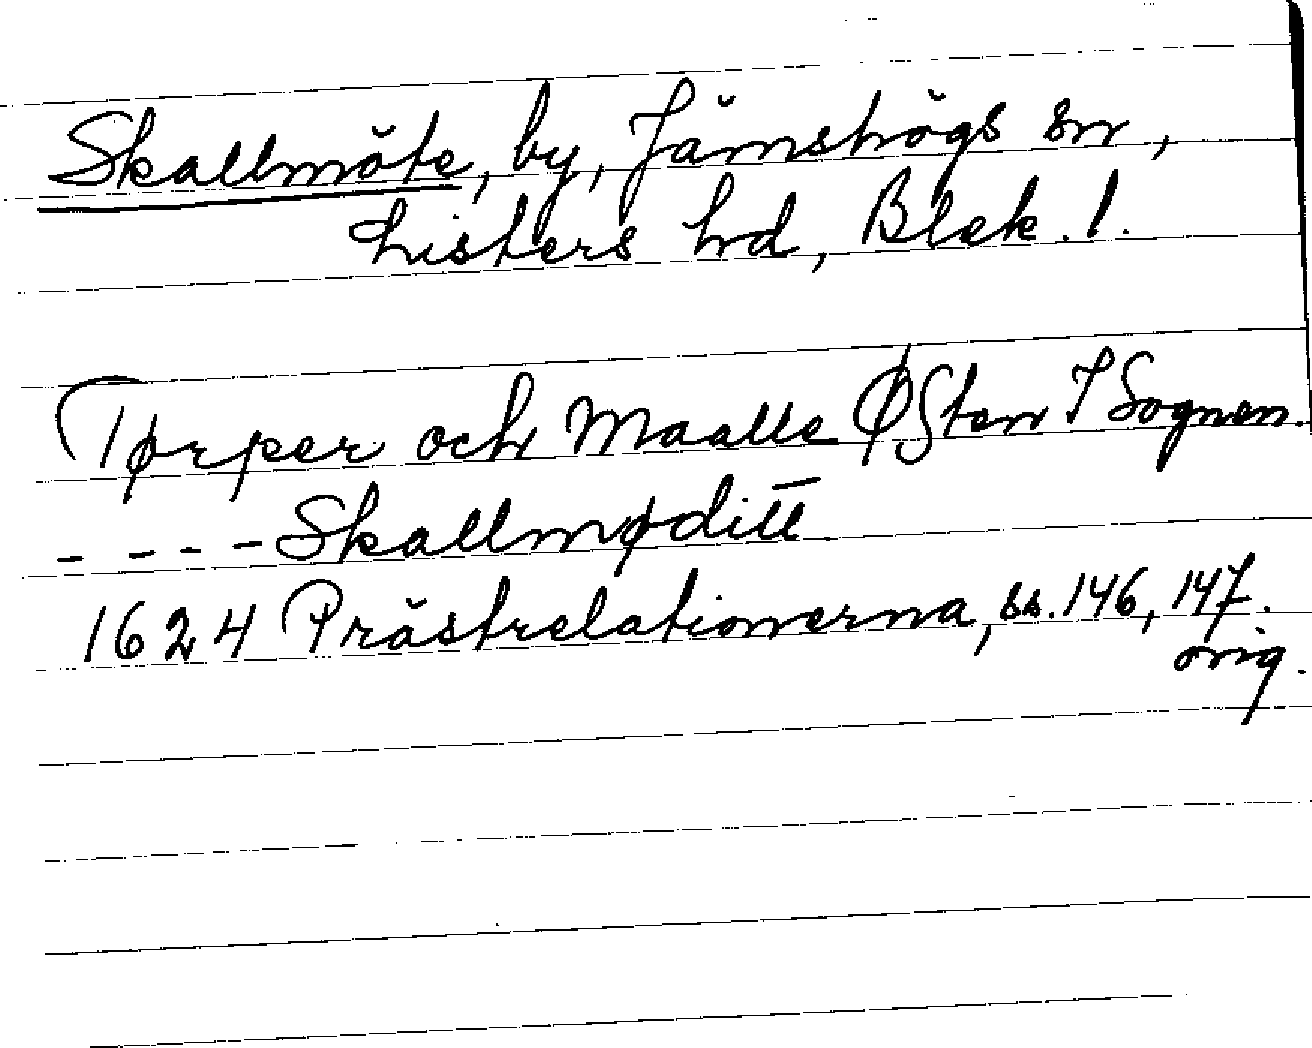 Skallmöte, by, Jämshögs sn,
Listers hd, Blek. l.
Tørper och Maalle ØSten I Sognen.
- - - - Skallmøditt
1624 Prästrelationerna, ss. 146, 147.
orig.